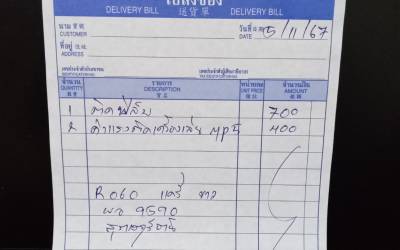 ใบส่งของ
DELIVERY BILL 送貨單 DELIVERY BILL
นาม
CUSTOMER
วันที่ 5/11/67
ที่อยู่
ADDRESS
เลขประจำตัวประชาชน
เลขประจำตัวผู้เสียภาษีอากร
จำนวน รายการ หน่วยละ จำนวนเงิน
QUANTITY DESCRIPTION UNIT PRICE AMOUNT
1 ติดฟิล์ม 700
2 ค่าแรงติดเครื่องเสียง 400
R060
9590
สุราษฎร์ธานี